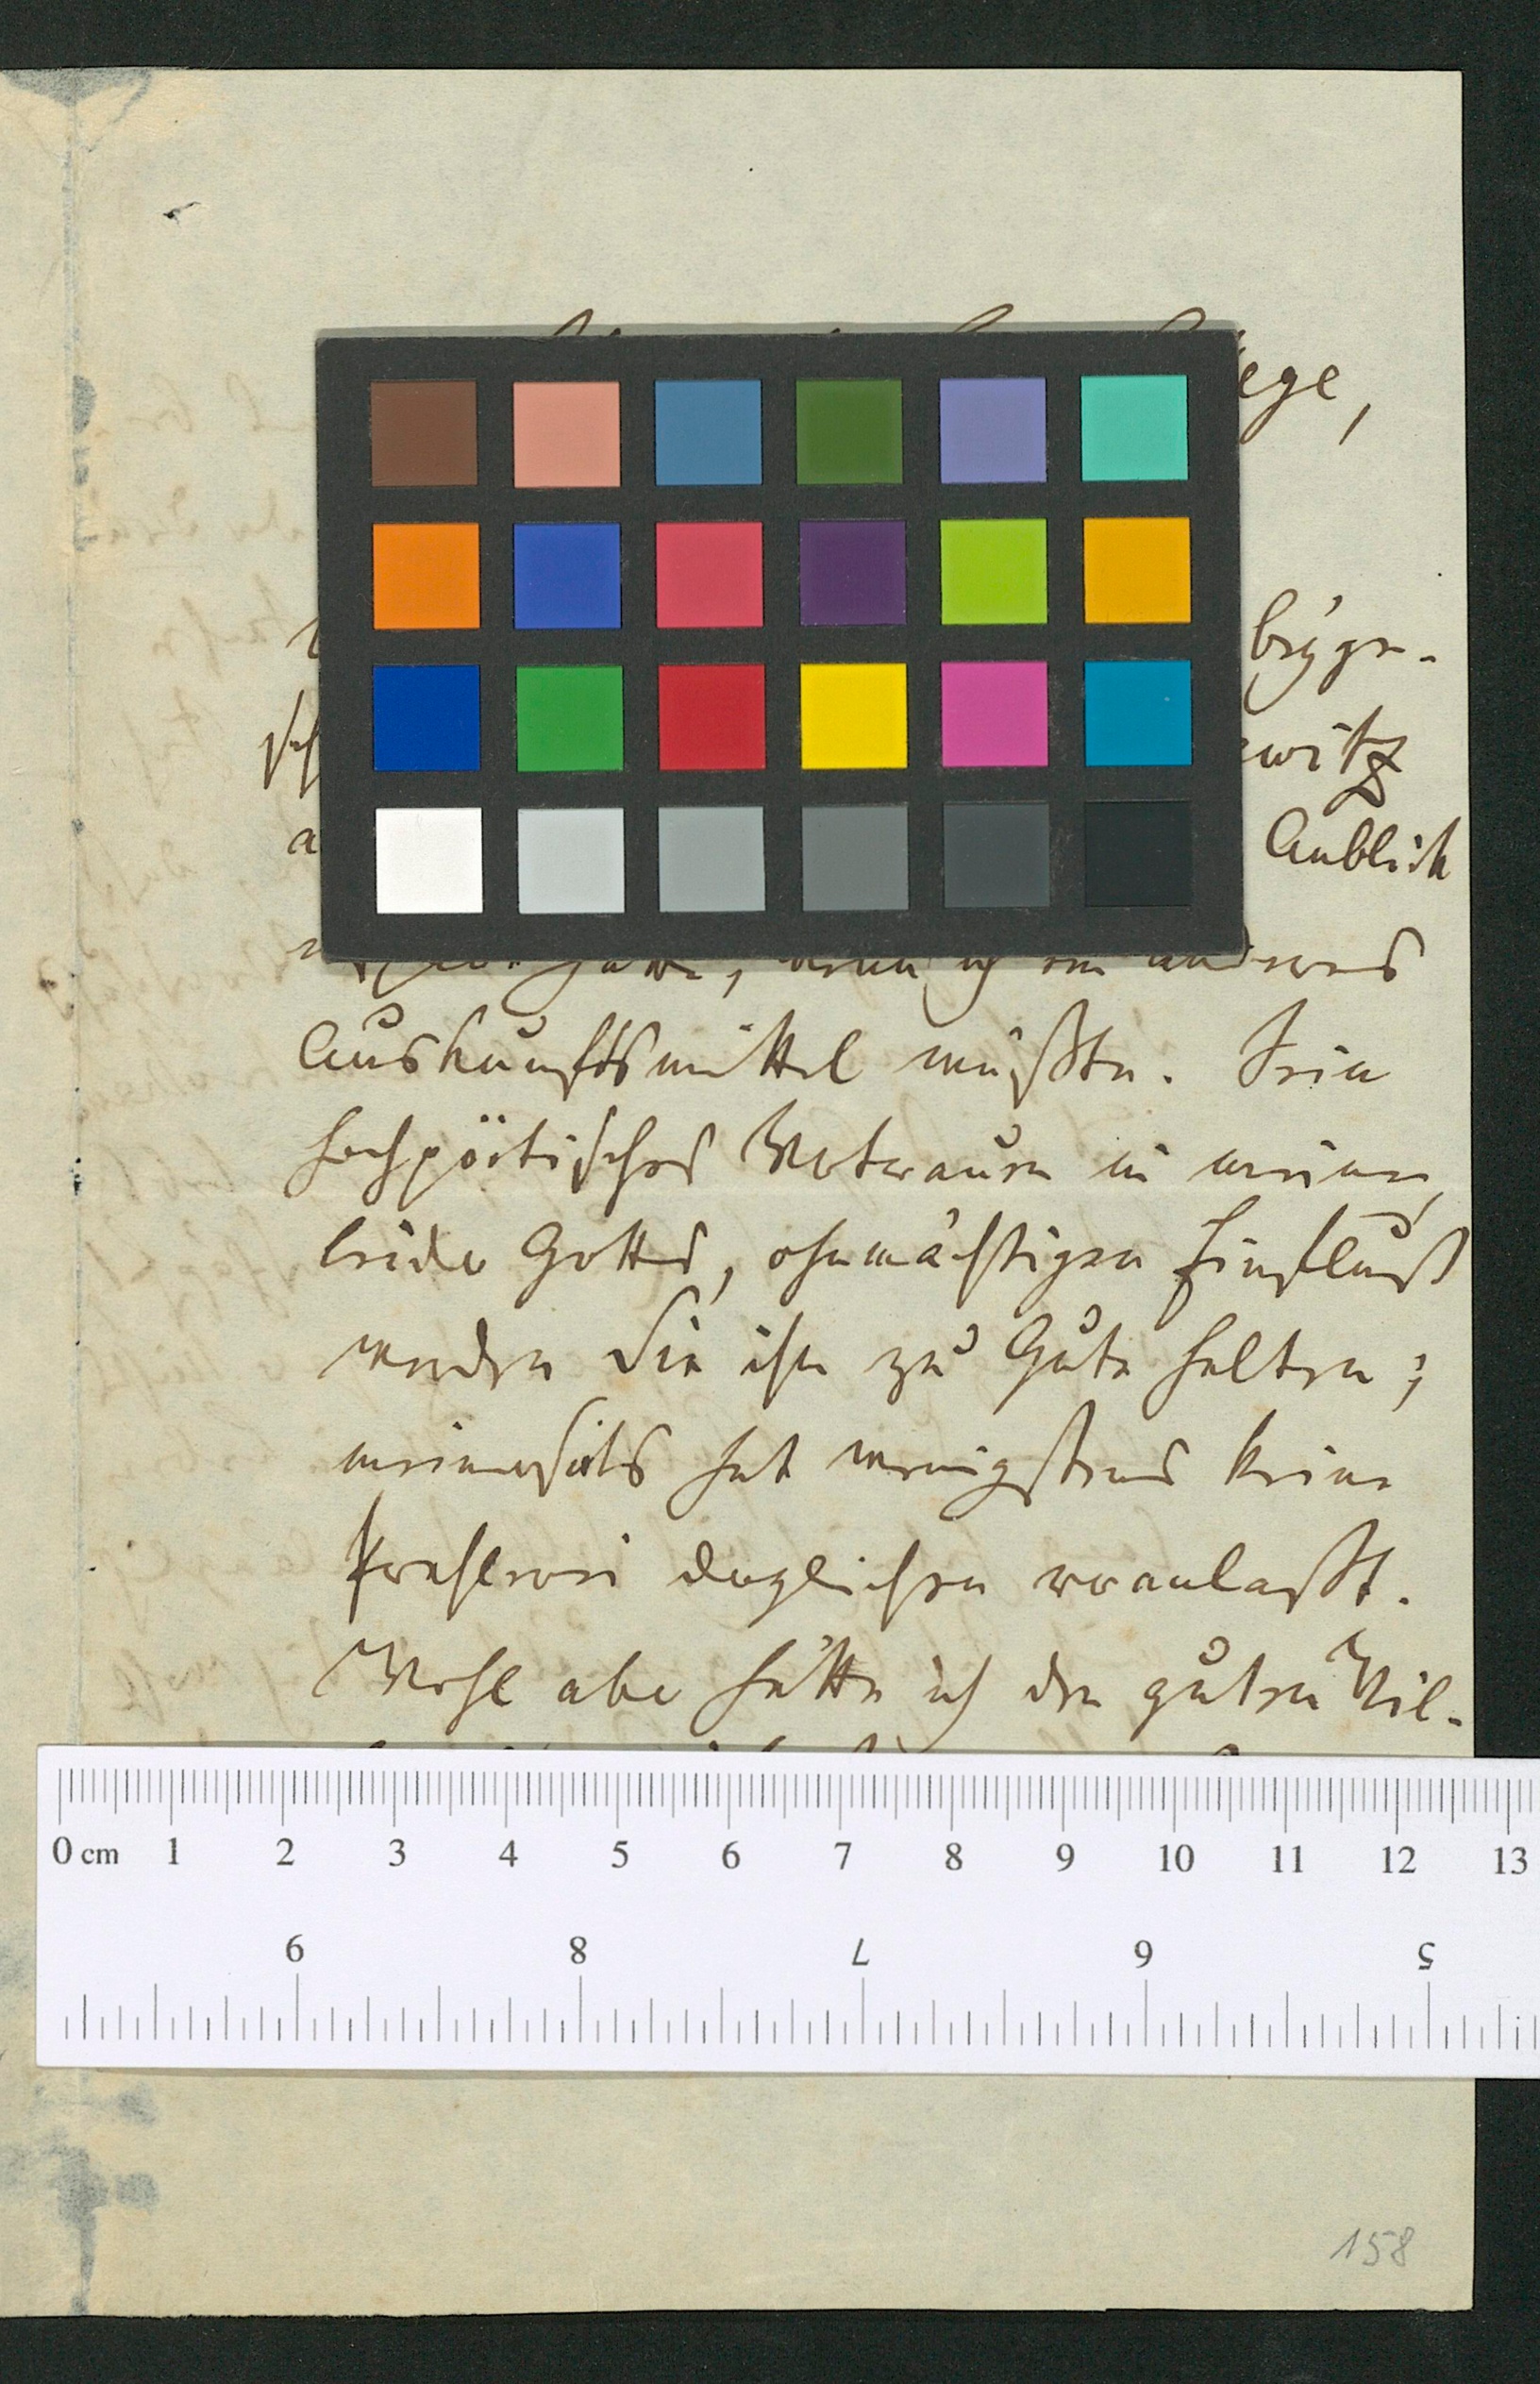 ege,
beyge-
witz
Anblick
ein anderes
Auskunftsmittel wüßte. Sein
hochpöetisches Vertrauen in meinen,
leider Gottes, ohnmächtigen Einfluß
werden Sie ihm zu Gute halten;
meinerseits hat wenigstens keine
Prahlerei dergleichen veranlaßt.
Wohl aber hätte ich den guten Wil-
0 cm 1 2 3 4 5 6 7 8 9 10 11 12 13
9 8 7 6 5
158